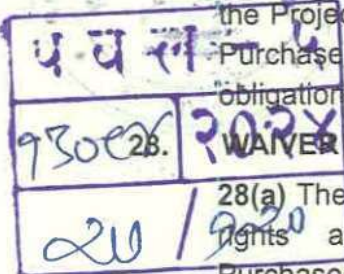 the Projec
प व स - ५
Purchase
obligation
28. २०२४ WAIVER
28(a) The
rights a
Purchase